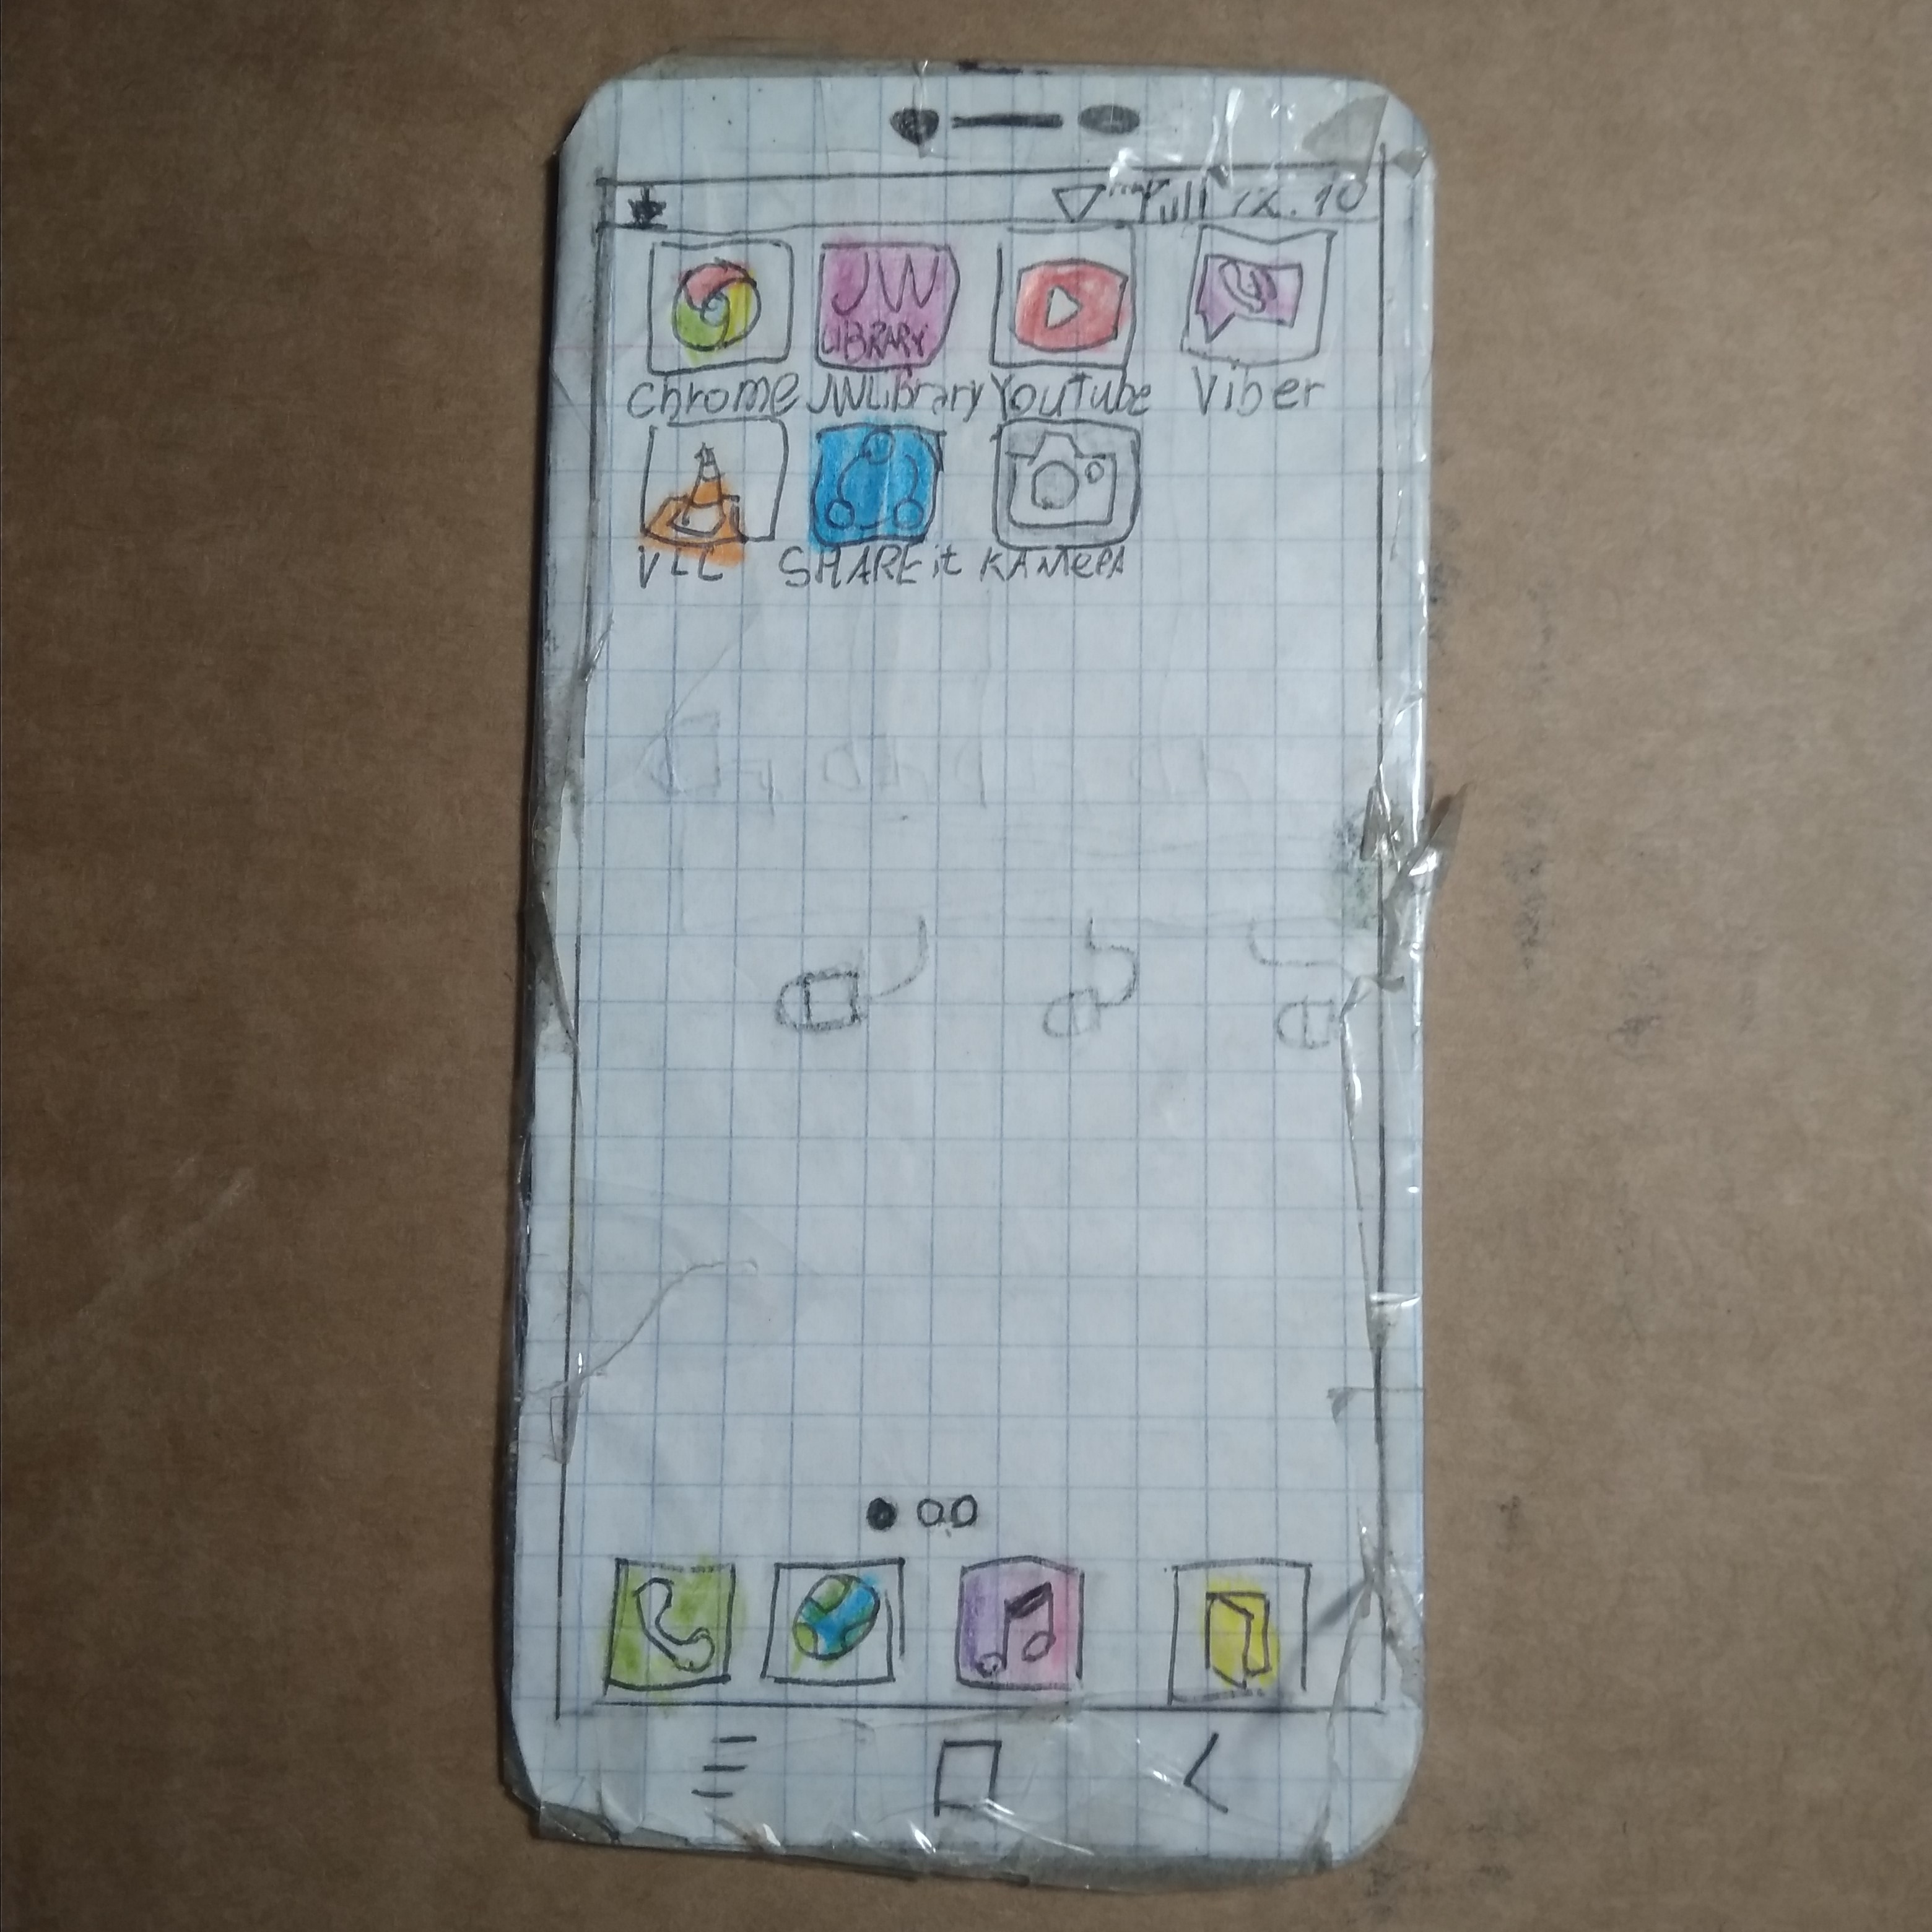 12.10
JW
LIBRARY
Chrome JWLibrary YouTube Viber
VLC SHAREit КАМЕРА